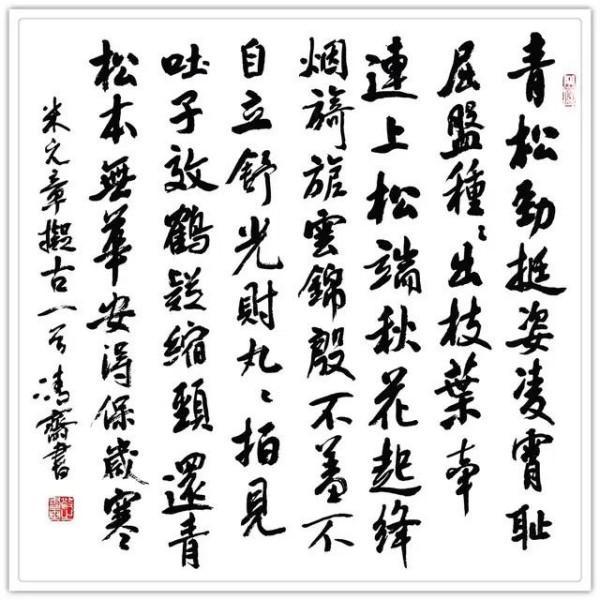 青松勁挺姿凌霄恥
屈盤種〻出枝葉牽
連上松端秋花起絳
烟旖旎雲錦殷不羞不
自立舒光射丸〻柏見
吐子效鶴疑縮頸還青
松本無華安得保歲寒
米元章擬古一首 齋書